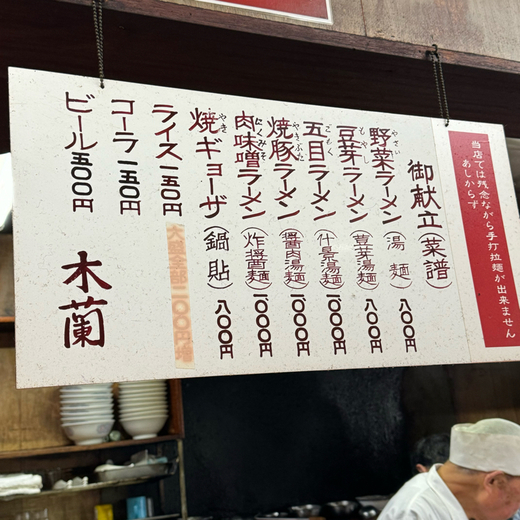 当店では残念ながら手打拉麺が出来ません
あしからず
御献立(菜譜)
やさい
野菜ラーメン(湯麺)八〇〇円
もやし
豆芽ラーメン(荳芽湯麺)八〇〇円
ごもく
五目ラーメン(什景湯麺)一、〇〇〇円
やきぶた
焼豚ラーメン(醤肉湯麺)一、〇〇〇円
にくみそ
肉味噌ラーメン(炸醤麺)一、〇〇〇円
やき
焼ギョーザ(鍋貼)八〇〇円
ライス一五〇円
大盛全部
コーラ一五〇円
ビール五〇〇円
木蘭